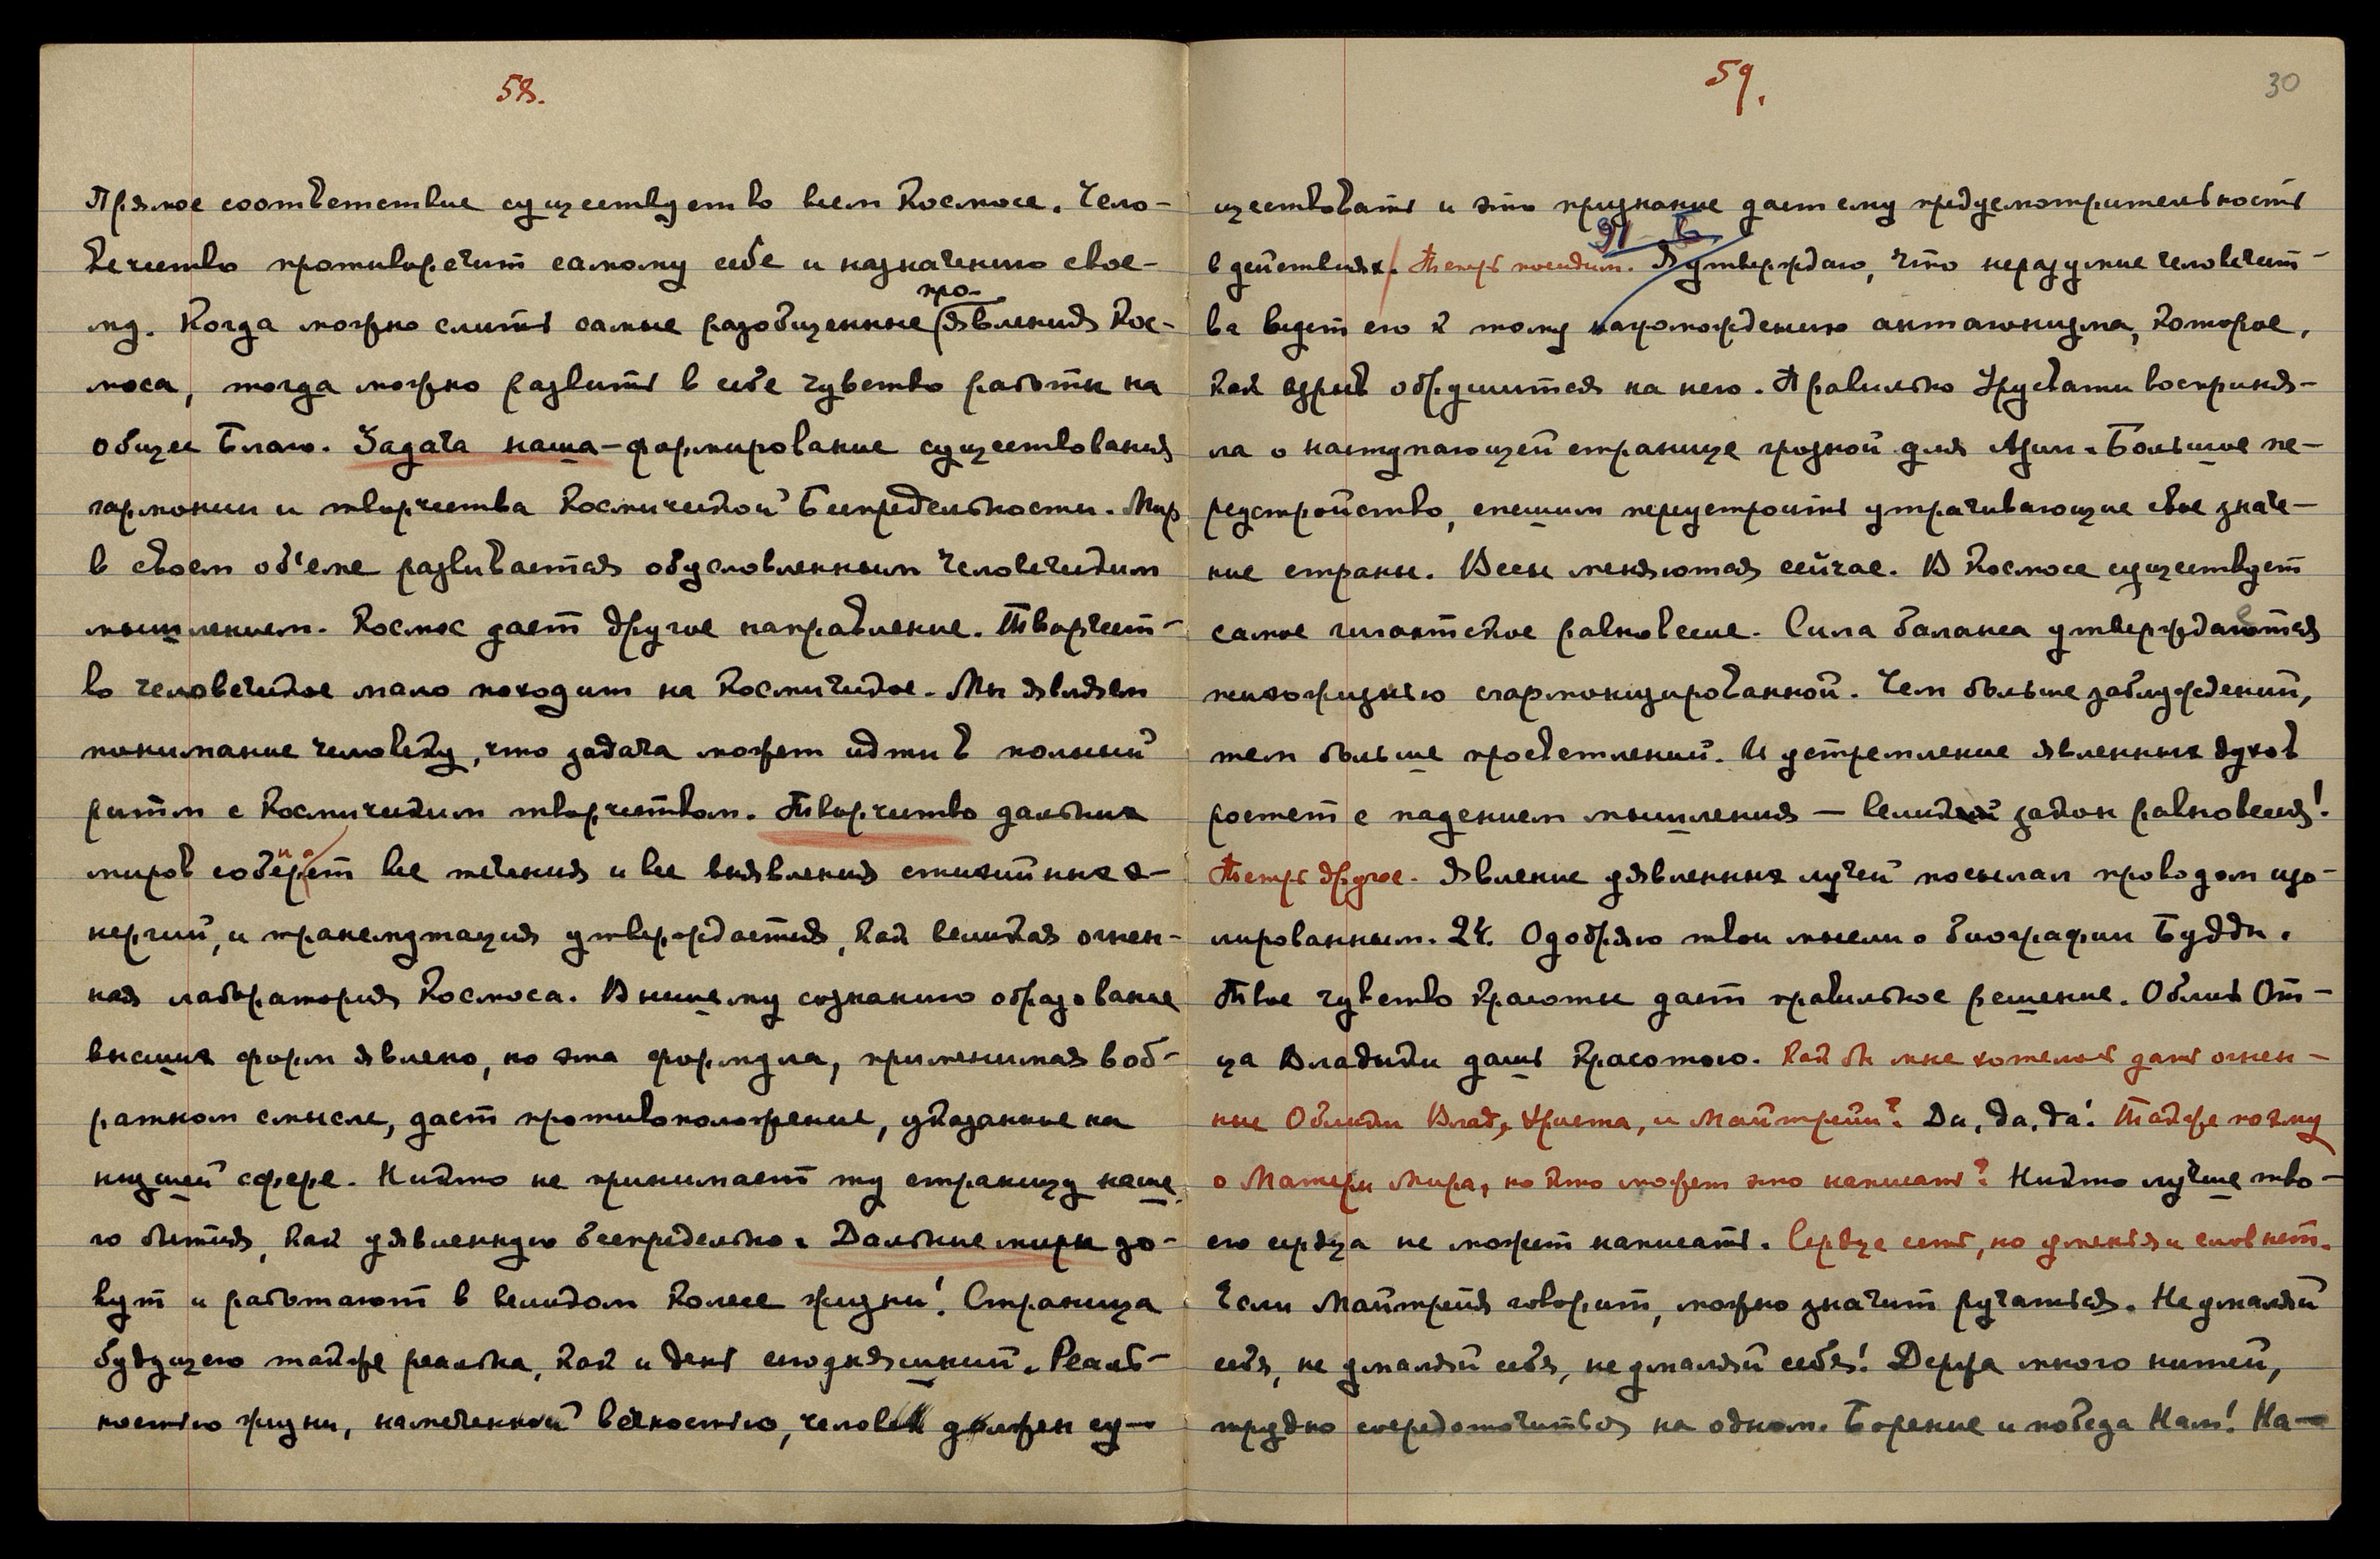 58.
Прямое соответствие существует во всем Космосе. Чело-
вечество противоречит самому себе и назначению свое-
про-
му. Когда можно слить самые разобщенные явления Кос-
моса, тогда можно развить в себе чувство работы на
общее Благо. Задача наша – формирование существования
гармонии и творчества Космической Беспредельности. Мир
в своем об'еме развивается обусловленным человеческим
мышлением. Космос дает другое направление. Творчест-
во человеческое мало походит на Космическое. Мы являем
понимание человеку, что задача может идти в полный
ритм с Космическим творчеством. Творчество дальних
миров собирает все течения и все выявления стихийных э-
нергий, и трансмутация утверждается, как великая огнен-
ная лаборатория Космоса. Высшему сознанию образование
высших форм явлено, но эта формула, применимая в об-
ратном смысле, дает противоположение, указанное на
низшей сфере. Никто не принимает ту страницу наше
го бытия, как уявленную беспредельно. Дальние миры зо-
вут и работают в великом колесе жизни! Страница
будущего также реальна, как и день сегодняшний. Реаль-
ностью жизни, намеченной вечностью, человек должен су-
59.
30
ществовать и это признание дает ему предусмотрительность
в действиях. Теперь посидим. Я утверждаю, что неразумие человечест-
ва ведет его к тому нагромождению антагонизма, которое,
как взрыв обрушится на него. Правильно Урусвати восприня-
ла о наступающей странице грозной для Азии. Большое пе-
реустройство, спешим переустроить утрачивающие свое значе-
ние страны. Весы меняются сейчас. В Космосе существует
самое гигантское равновесие. Сила баланса утверждается
психожизнью сгармонизированной. Чем больше заблуждений,
тем больше просветлений. И устремление явленных духов
ростет с падением мышления — великий закон равновесия!
Теперь другое. Явление уявленных лучей посылал проводом изо-
лированным. 24. Одобряю твои мысли о биографии Будды.
Твое чувство красоты дает правильное решение. Облик От-
ца Владыки дашь красотою. Как бы мне хотелось дать огнен-
ные Облики Влад, Христа, и Майтрейи? Да, да, да! Также поэму
о Матери Мира, но кто может это написать? Никто лучше тво-
его сердца не может написать. Сердце есть, но уменья и слов нет.
Если Майтрейя говорит, можно значит ручаться. Не умаляй
себя, не умаляй себя, не умаляй себя! Держа много нитей,
трудно сосредоточиться на одном. Борение и победа Нам! На-